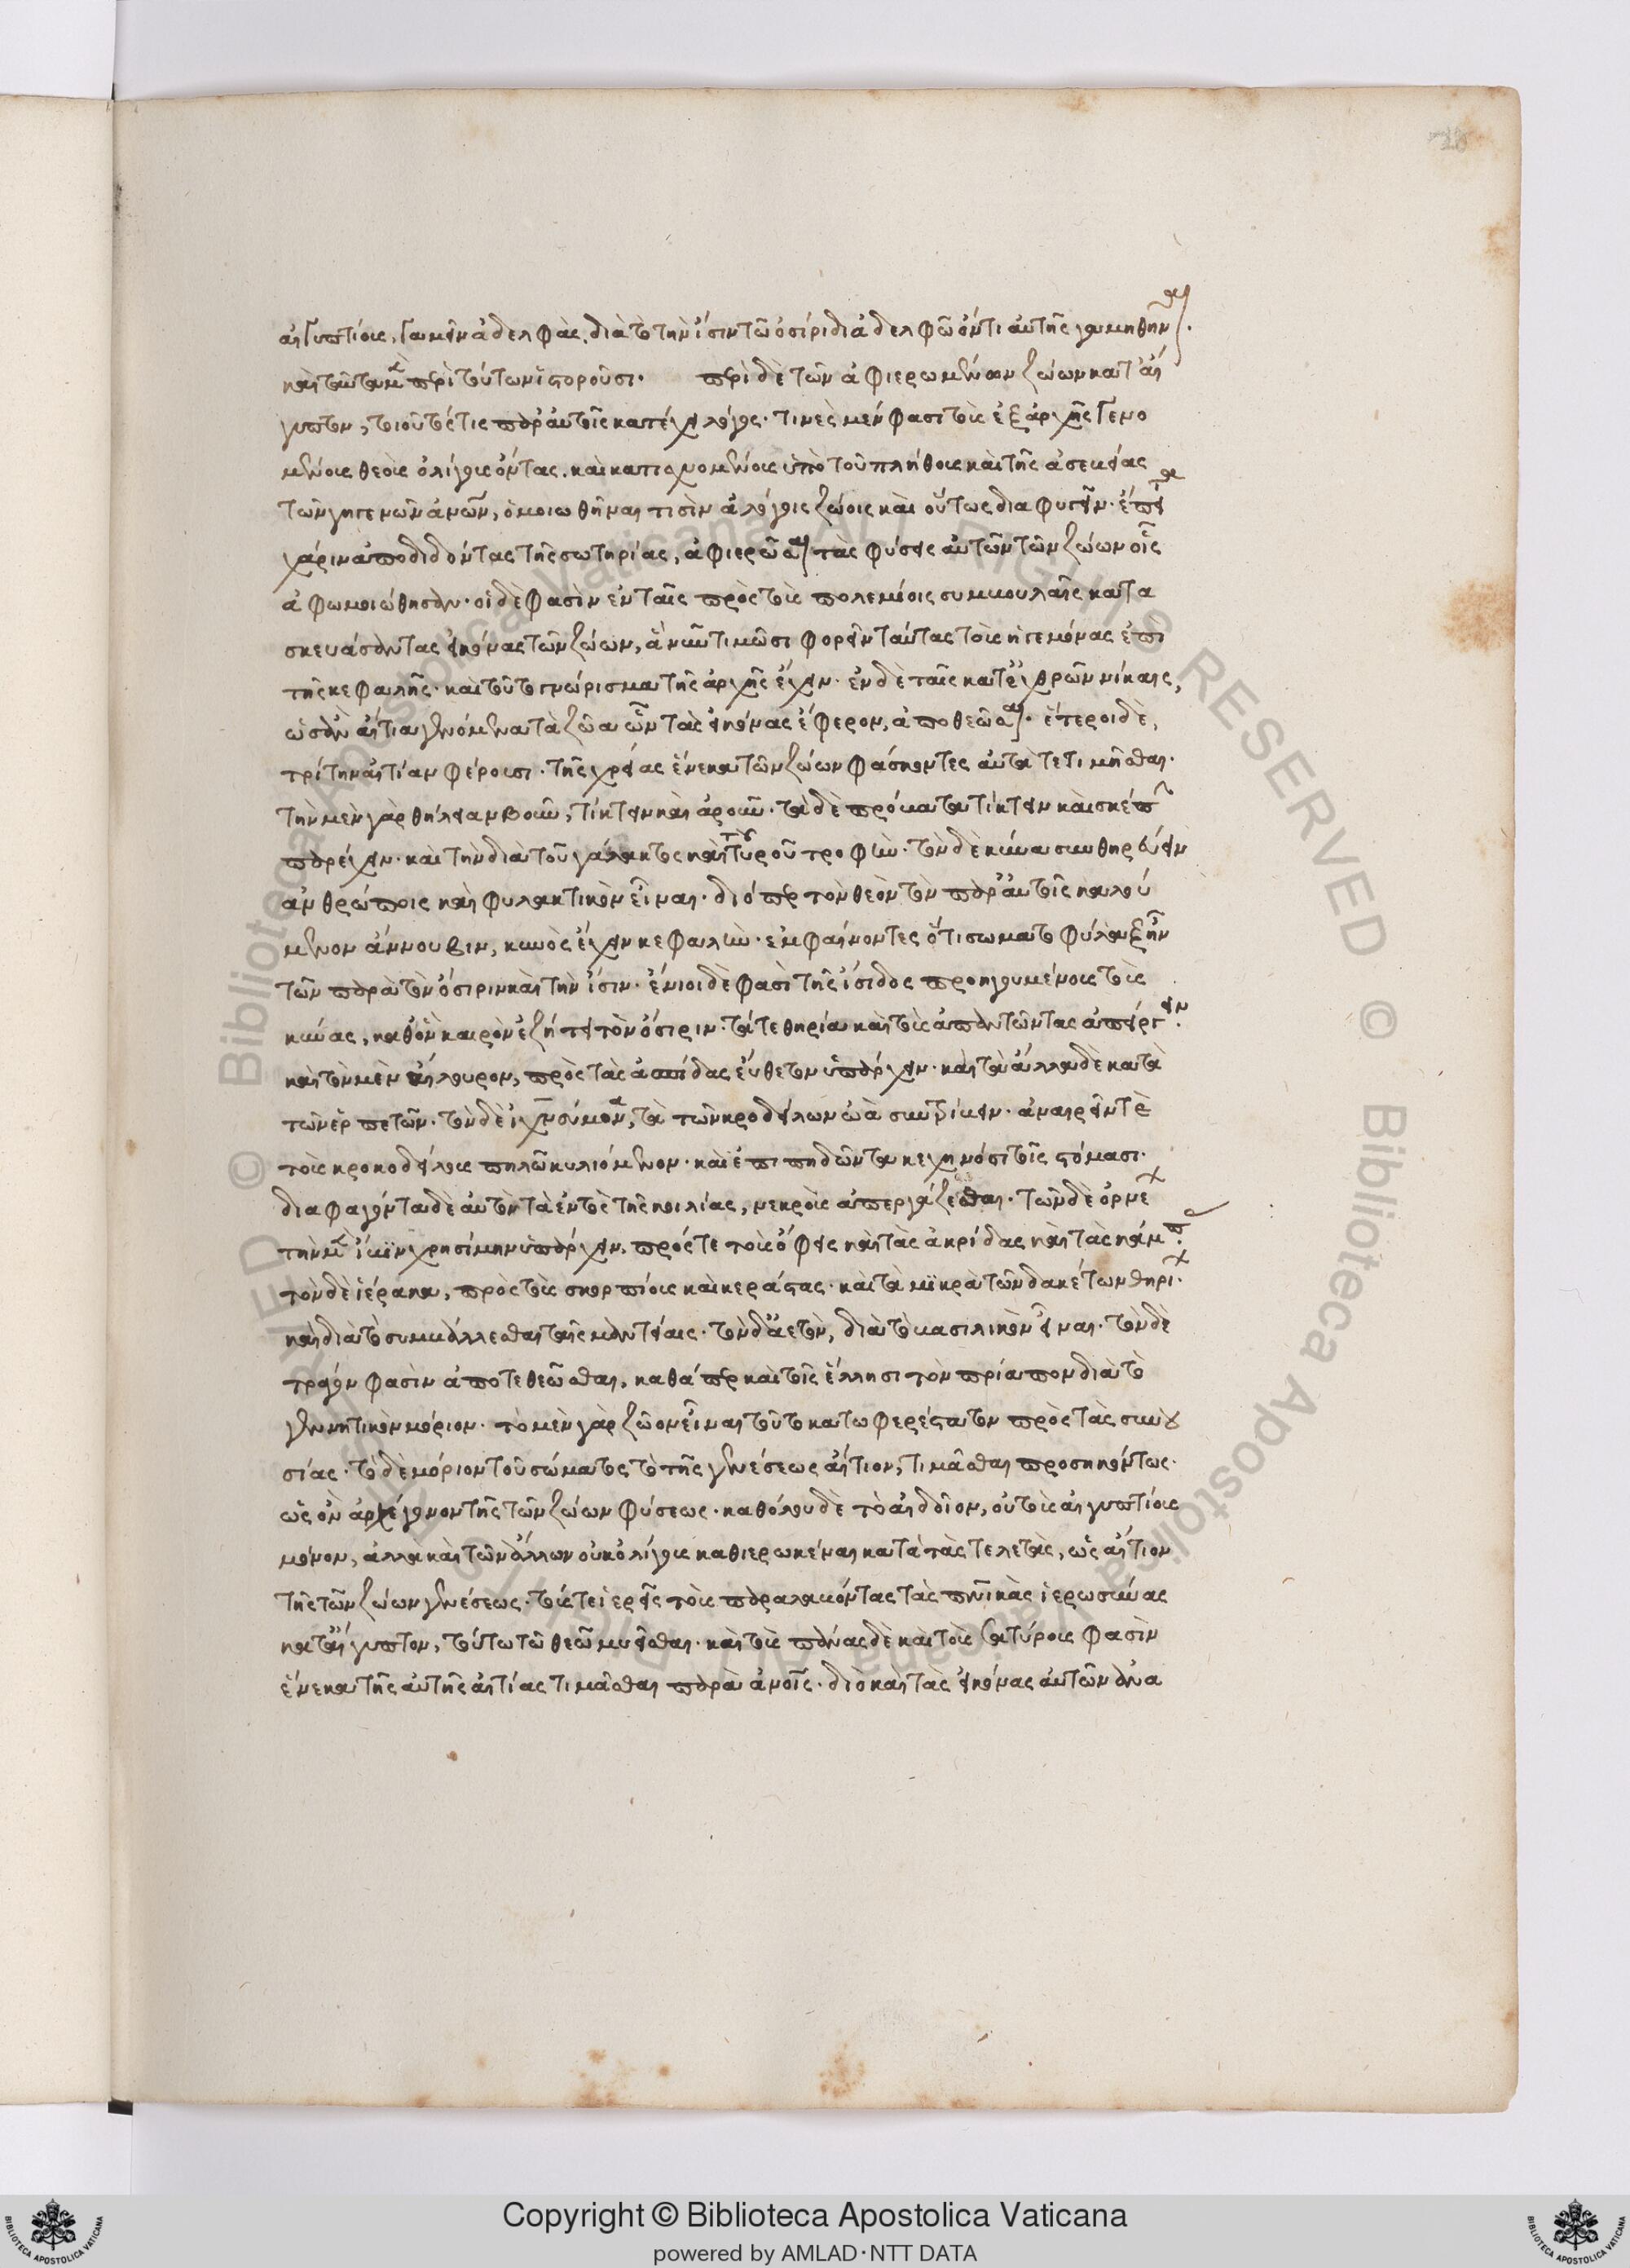 αἰγυπτίοις, γαμεῖν ἀδελφὰς. διὰ τὸ τὴν ἶσιν τῶ ὀσίριδι ἀδελφῶ ὄντι αὐτῆς γαμηθῆναι.
καὶ ταῦτα μὲν περὶ τούτων ἱστοροῦσι. περὶ δὲ τῶν ἀφιερωμένων ζώων κατ' αἴ
γυπτον, τοιοῦτός τις παρ' αὐτοῖς κατέχει λόγος. τινὲς μέν φασι τοὺς ἐξ ἀρχῆς γενο
μένους θεοὺς ὀλίγους ὄντας. καὶ κατισχυομένους ὑπὸ τοῦ πλήθους καὶ τῆς ἀσεβείας
τῶν γηγενῶν ἀνων, ὁμοιωθῆναι τισὶν ἀλόγοις ζώοις καὶ οὕτως διαφυγεῖν. ἔπειτα
χάριν ἀποδιδόντας τῆς σωτηρίας, ἀφιερῶσαι τὰς φύσεις αὐτῶν τῶν ζώων οἷς
ἀφωμοιώθησαν. οἱ δὲ φασὶν ἐν ταῖς πρὸς τοὺς πολεμίους συμβουλαῖς κατα
σκευάσαντας εἰκόνας τῶν ζώων, ἃ νῦν τιμῶσι φορεῖν ταύτας τοὺς ἡγεμόνας ἐπὶ
τῆς κεφαλῆς. καὶ τοῦτο γνώρισμα τῆς ἀρχῆς ἔχειν. ἐν δὲ ταῖς κατ' ἐχθρῶν νίκαις,
ὡσὰν αἴτια γενόμενα τὰ ζῶα ὧν τὰς εἰκόνας ἔφερον, ἀποθεῶσαι. ἕτεροι δὲ,
τρίτην αἰτίαν φέρουσι. τῆς χρείας ἕνεκα τῶν ζώων φάσκοντες αὐτὰ τετιμῆσθαι.
τὴν μὲν γὰρ θήλειαν βοῦν, τίκτειν καὶ ἀροῦν. τὰ δὲ πρόβατα τίκτειν καὶ σκέπην
παρέχειν. καὶ τὴν διὰ τοῦ γάλακτος καὶ τυροῦ τροφὴν. τὸν δὲ κύνα συνθηρεύειν
ἀνθρώποις καὶ φυλακτικὸν εἶναι. διόπερ τὸν θεὸν τὸν παρ' αὐτοῖς καλού
μενον ἄννουβιν, κυνὸς ἔχειν κεφαλὴν. ἐμφαίνοντες ὅτι σωματοφύλαξ ἦν
τῶν παρὰ τὸν ὄσιριν καὶ τὴν ἶσιν. ἔνιοι δὲ φασὶ τῆς ἴσιδος προηγουμένους τοὺς
κύνας, καθ' ὃν καιρὸν ἐζήτει τὸν ὄσιριν. τά τε θηρία καὶ τοὺς ἀπαντῶντας ἀπείργειν.
καὶ τὸν μὲν αἴλουρον, πρὸς τὰς ἀσπίδας εὔθετον ὑπάρχειν. καὶ τὰ ἄλλα δὲ κατὰ
τῶν ἑρπετῶν. τὸν δὲ ἰχνεύμονα, τὰ τῶν κροδείλων ὠὰ συντρίβειν. ἀναιρεῖν τὲ
τοὺς κροκοδείλους πηλῶ κυλιόμενον. καὶ ἐπιπηδῶντα κεχηνόσι τοῖς στόμασι.
διαφαγόντα δὲ αὐτὸν τὰ ἐντὸς τῆς κοιλίας, νεκροὺς ἀπεργάζεσθαι. τῶν δὲ ὀρνέων
τὴν μὲν ἴβιν χρησίμην ὑπάρχειν. πρός τε τοὺς ὄφεις καὶ τὰς ἀκρίδας καὶ τὰς κάμπας.
τὸν δὲ ἱέρακα, πρὸς τοὺς σκορπίους καὶ κεράστας. καὶ τὰ μικρὰ τῶν δακέτων θηρίων.
καὶ διὰ τὸ συμβάλλεσθαι ταῖς μαντείαις. τὸν δ' ἀετὸν, διὰ τὸ βασιλικὸν εἶναι. τὸν δὲ
τράγον φασὶν ἀποτεθεῶσθαι, καθάπερ καὶ τοῖς ἕλλησι τὸν πρίαπον διὰ τὸ
γεννητικὸν μόριον. τὸ μὲν γὰρ ζῶον εἶναι τοῦτο κατωφερέστατον πρὸς τὰς συνου
σίας. τὸ δὲ μόριον τοῦ σώματος τὸ τῆς γενέσεως αἴτιον, τιμᾶσθαι προσηκόντως.
ὡς ὂν ἀρχέγονον τῆς τῶν ζώων φύσεως. καθόλου δὲ τὸ αἰδοῖον, οὐ τοὺς αἰγυπτίους
μόνον, ἀλλὰ καὶ τῶν ἄλλων οὐκ ὀλίγους καθιερωκέναι κατὰ τὰς τελετὰς, ὡς αἴτιον
τῆς τῶν ζώων γενέσεως. τούς τε ἱερεῖς τοὺς παραλαβόντας τὰς πρικὰς ἱερωσύνας
κατ' αἴγυπτον, τούτω τῶ θεῶ μυεῖσθαι. καὶ τοὺς πᾶνας δὲ καὶ τοὺς σατύρους φασὶν
ἕνεκα τῆς αὐτῆς αἰτίας τιμᾶσθαι παρὰ ἀνοις. διὸ καὶ τὰς εἰκόνας αὐτῶν ἀνα
Copyright © Biblioteca Apostolica Vaticana
powered by AMLAD·NTT DATA